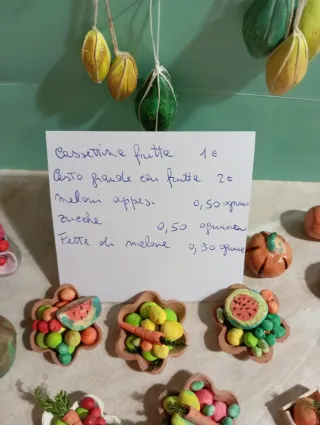 Cassettina frutta 1€
Cesto grande con frutta 2€
meloni appesi 0,50 ognuno
zucche 0,50 ognuna
Fette di melone 0,30 ognuna